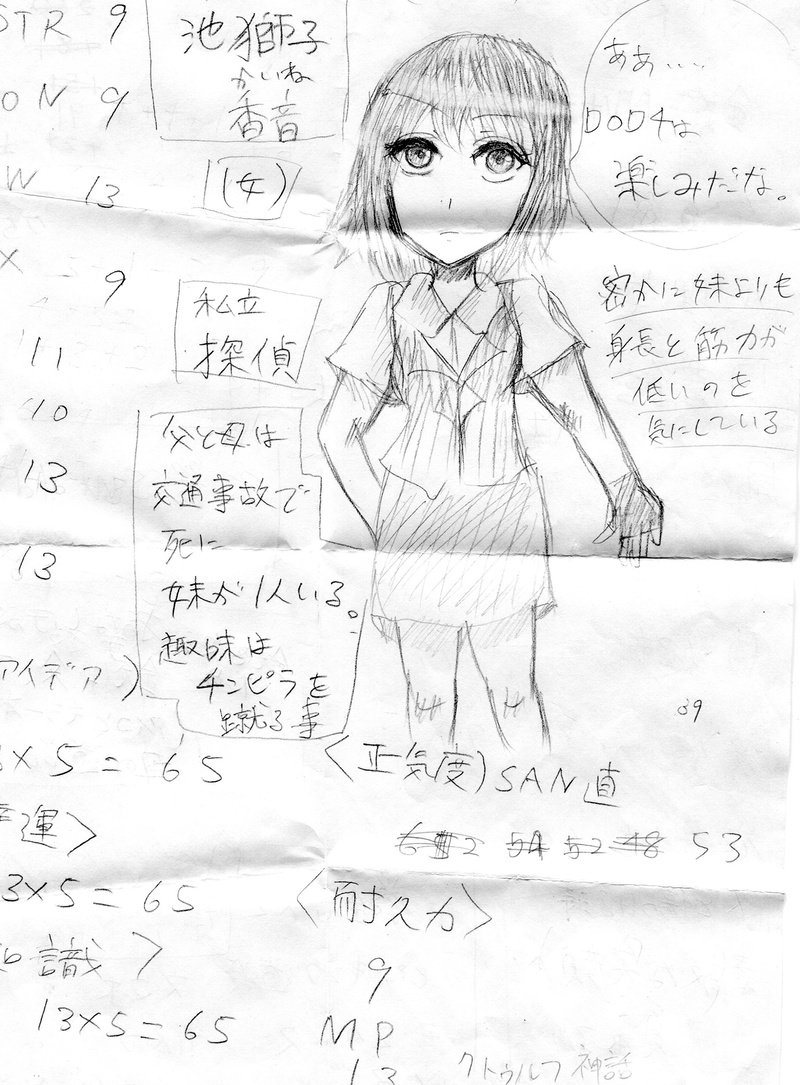 STR 9
池獅子
かいね
香音
ON 9
(女)
W 13
X 9
11
10
13
13
私立
探偵
父と母は
交通事故で
死に
妹が1人いる。
趣味は
チンピラを
蹴る事
ああ・・・
DOD4は
楽しみだな。
密かに妹よりも
身長と筋力が
低いのを
気にしている
アイデア)
3×5=65
運>
3×5=65
識>
13×5=65
39
<正気度)SAN直
54 52 48 53
<耐久力>
9
MP
13
クトゥルフ神話